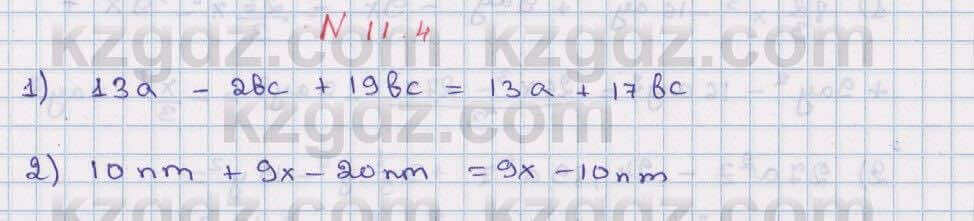 N 11.4
kzgdz.com
1) 13a - 2bc + 19bc = 13a + 17bc
kzgdz.com
2) 10nm + 9x - 20nm = 9x - 10nm